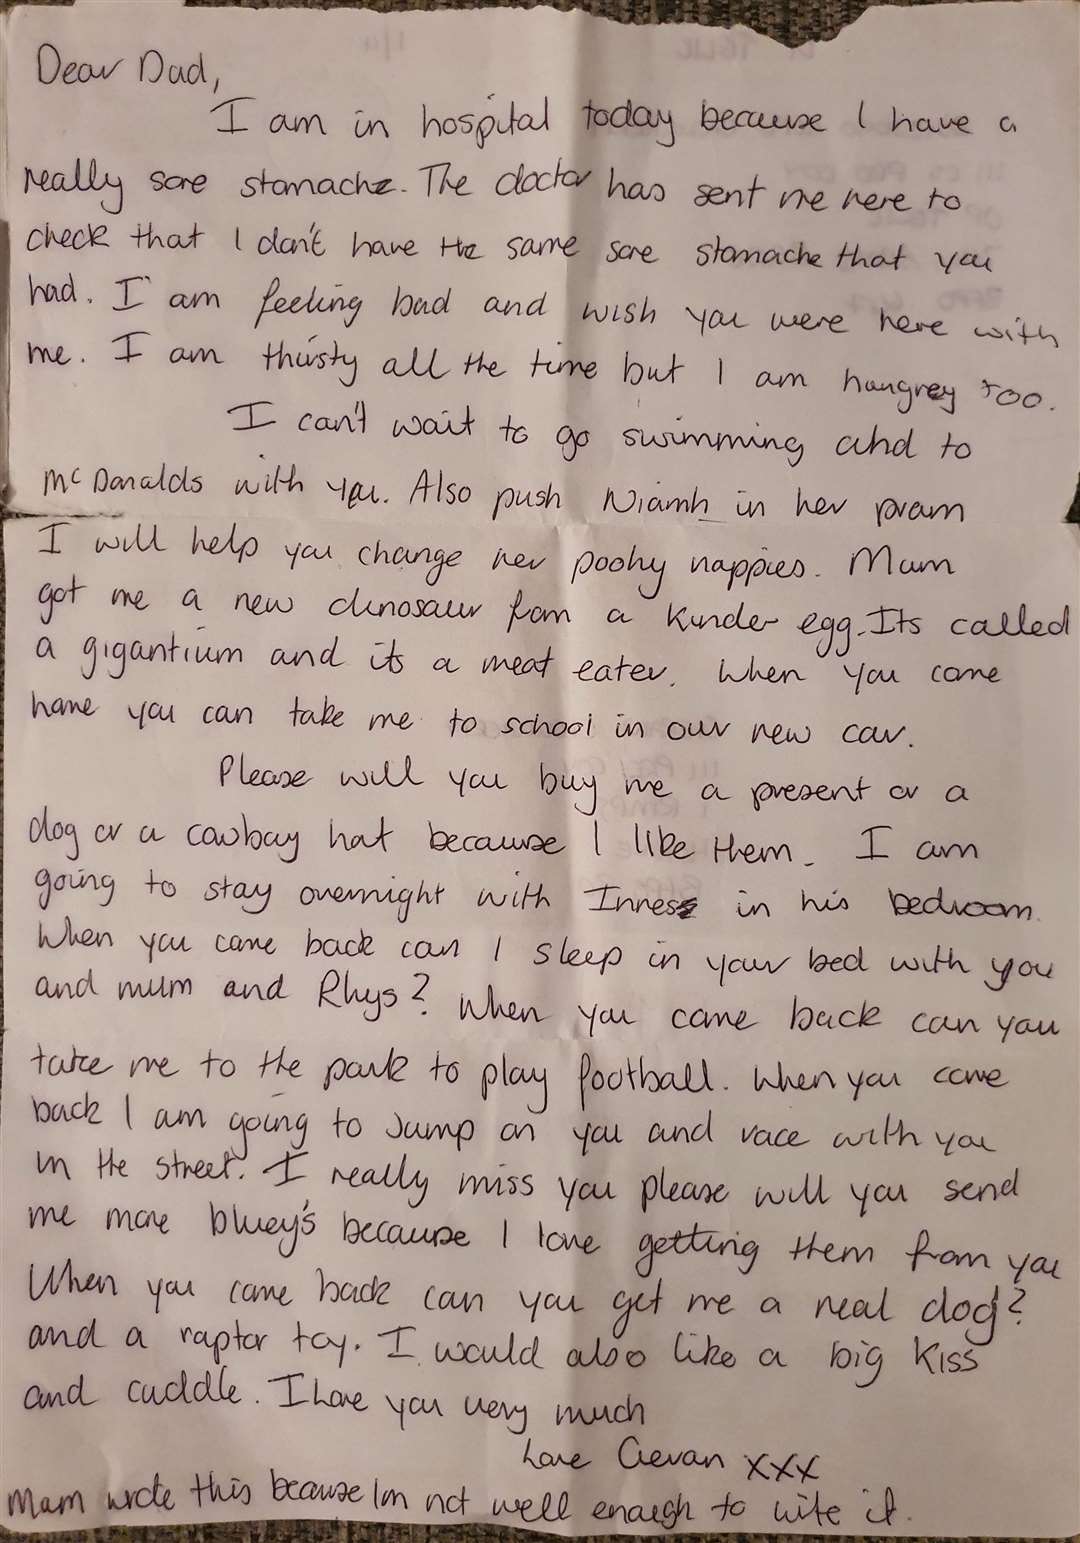 Dear Dad,
I am in hospital today because I have a
really sore stomache. The doctor has sent me here to
check that I don't have the same sore stomache that you
had. I am feeling bad and wish you were here with
me. I am thirsty all the time but I am hungrey too.
I can't wait to go swimming and to
McDonalds with you. Also push Niamh in her pram
I will help you change her poohy nappies. Mum
got me a new dinosaur from a Kinder egg. Its called
a gigantium and its a meat eater. When you come
home you can take me to school in our new car.
Please will you buy me a present or a
dog or a cowboy hat because I like them. I am
going to stay overnight with Inness in his bedroom.
When you come back can I sleep in your bed with you
and mum and Rhys? When you come back can you
take me to the park to play football. When you come
back I am going to Jump on you and race with you
in the street. I really miss you please will you send
me more bluey's because I love getting them from you
When you come back can you get me a real dog?
and a raptor toy. I would also like a big Kiss
and cuddle. I Love you very much
Love Cievan xxx
Mum wrote this because Im not well enough to write it.